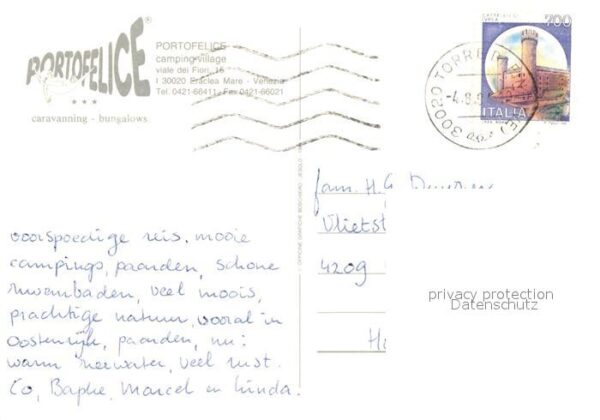 PORTOFELICE
caravanning - bungalows
PORTOFELICE
camping village
viale dei Fiori, 15
I 30020 Eraclea Mare - Venezia
Tel. 0421-66411 - Fax 0421-66021
700
ITALIA
30020 TORRE DI
-4.8.9
fam. H.G.
Vlietst
4209
H
privacy protection
Datenschutz
voorspoedige reis. mooie
campings, paarden, schone
zwembaden, veel moois,
prachtige natuur, vooral in
Oostenrijk, paarden, nu:
warm zeewater, veel rust.
Co, Marcel en Linda.